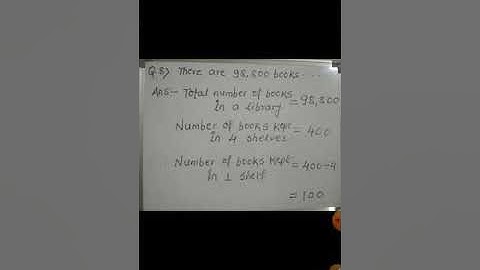 Q 8> There are 98,800 books ....
Ans:- Total number of books
In a library = 98,800
Number of books kept
In 4 shelves = 400
Number of books kept
In 1 shelf = 400÷4
= 100